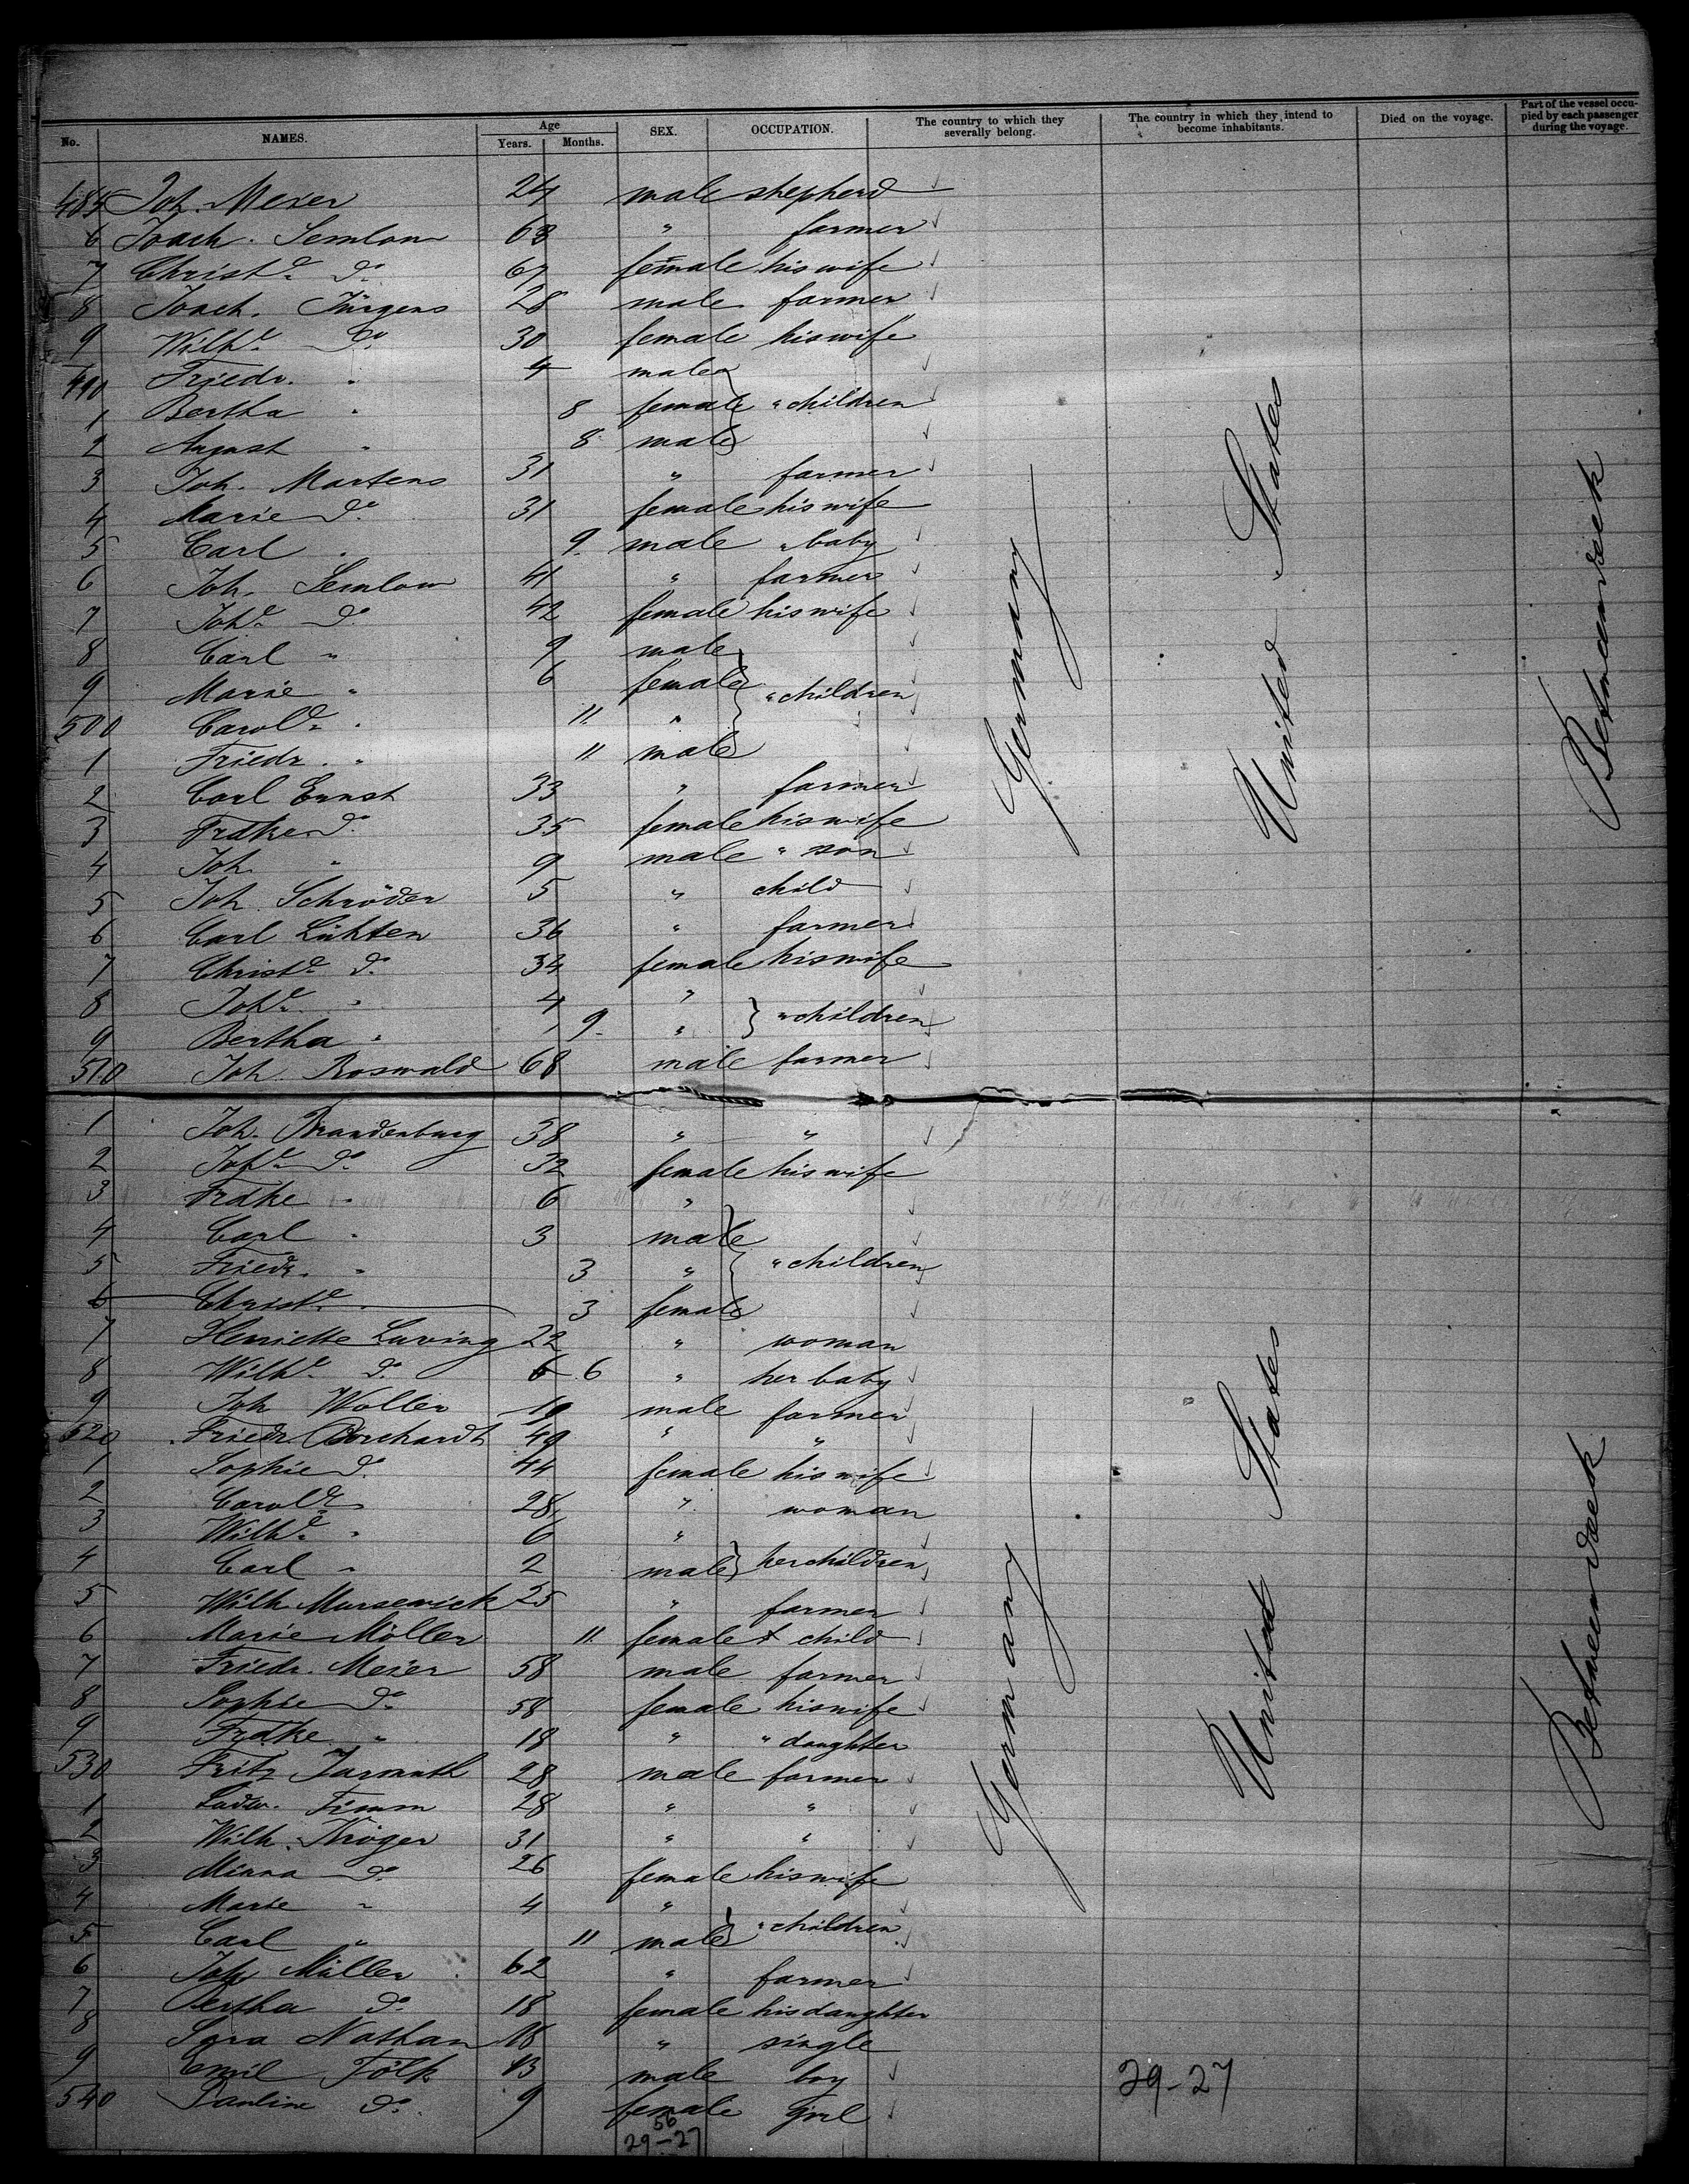 No. NAMES. Age Years. Months. SEX. OCCUPATION. The country to which they severally belong. The country in which they intend to become inhabitants. Died on the voyage. Part of the vessel occupied by each passenger during the voyage.
485 Joh. Meier 24 male shepherd
6 Joach. Semlow 68 " farmer
7 Christe do 67 female his wife
8 Joach. Jürgens 28 male farmer
9 Wilhe do 30 female his wife
490 Friedr. " 4 male
1 Bertha " 8 female " children
2 August " 8 male
3 Joh. Martens 31 " farmer
4 Marie do 31 female his wife
5 Carl " 9 male " baby
6 Joh. Semlow 41 " farmer
7 Johe do 42 female his wife
8 Carl " 9 male
9 Marie " 6 female " children
500 Carole " 11 "
1 Friedr. " 11 male
2 Carl Ernst 33 " farmer
3 Frdke do 35 female his wife
4 Joh. " 9 male " son
5 Joh. Schröder 5 " child
6 Carl Lühten 36 " farmer
7 Christe do 34 female his wife
8 Johe " 4 "
9 Bertha " 9 " " children
510 Joh. Roswald 68 male farmer
1 Joh. Brandenburg 38 " "
2 Johe do 32 female his wife
3 Frdke " 6 "
4 Carl " 3 male
5 Friedr. " 3 " " children
6 Christe " 3 female
7 Henriette Luving 22 " woman
8 Wilhe do 6 6 " her baby
9 Joh Woller 19 male farmer
520 Friedr. Borchardt 49 " "
1 Sophie do 44 female his wife
2 Carole " 28 " woman
3 Wilhe " 6 "
4 Carl " 2 male her children
5 Wilh. Mursewick 25 " farmer
6 Marie Möller 11 female child
7 Friedr. Meier 58 male farmer
8 Sophie do 58 female his wife
9 Frdke " 18 " " daughter
530 Fritz Jarmuth 28 male farmer
1 Ludw. Timm 28 " "
2 Wilh. Kröger 31 " "
3 Minna do 26 female his wife
4 Marie " 4 "
5 Carl " 11 male " children
6 Joh. Müller 62 " farmer
7 Bertha do 18 female his daughter
8 Sara Nathan 18 " single
9 Emil Fölk 13 male boy
540 Pauline do 9 female Girl
Germany
United States
Betweendeck
Germany
United States
Betweendeck
29-27
56
29-27